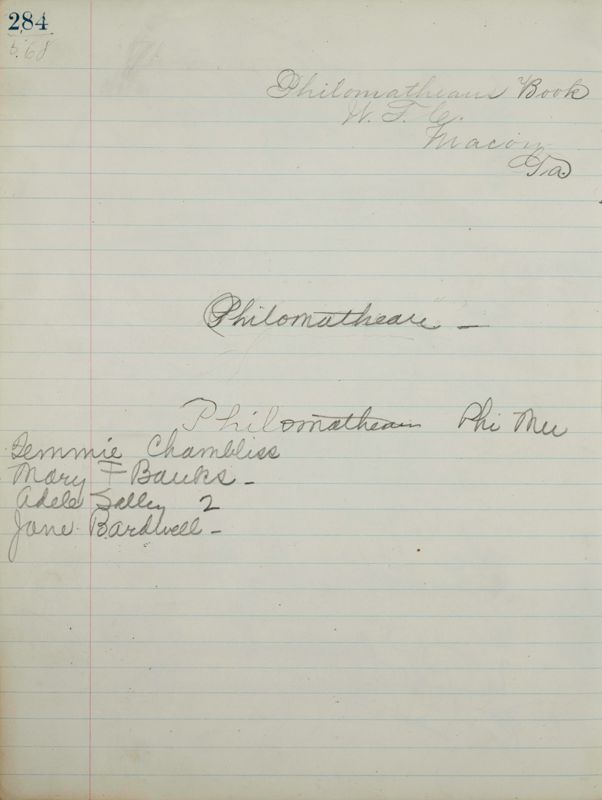 284
568
Philomathean Book
W. F. C.
Macon
Ga
Philomathean —
Philomathean Phi Mu
Temmie Chambliss
Mary F Banks —
Adele Salley 2
Jane Bardwell —